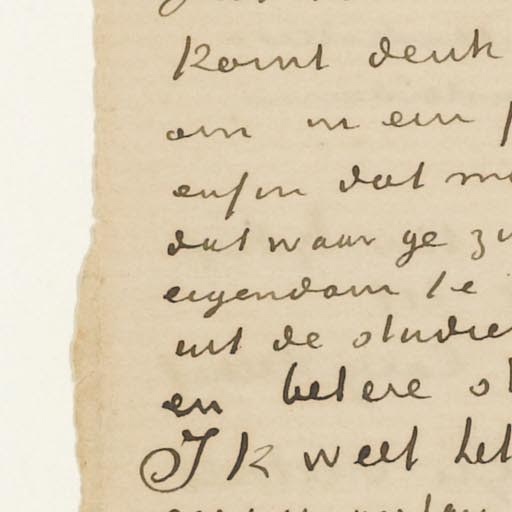 komt denk
om in een
enfin dat
dat waar ge
eigendom te
uit de studie
en betere
Ik weet het